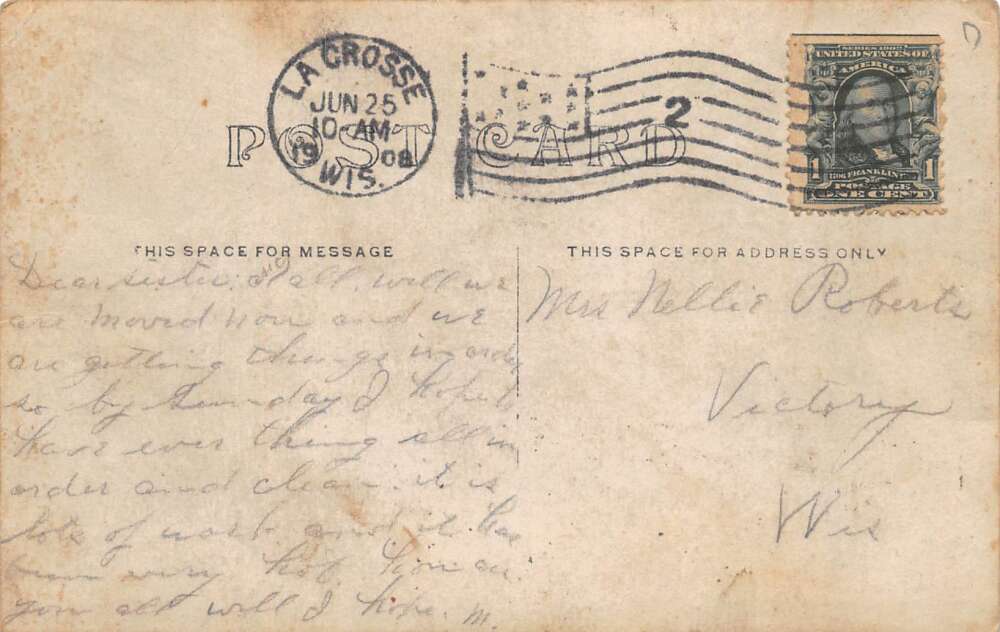 LA CROSSE
JUN 25
10 AM
1908
WIS.
2
SERIES 1902
UNITED STATES OF
AMERICA
1 1
FRANKLIN
POSTAGE
ONE CENT
POST CARD
THIS SPACE FOR MESSAGE
Dear sister all. well we
are moved now and we
are getting things in order
so by Sunday I hope
have ever thing all in
order and clean. it is
lots of work and it has
been very hot. how are
you all well I hope. M.
THIS SPACE FOR ADDRESS ONLY
Mrs Nellie Roberts
Victory
Wis